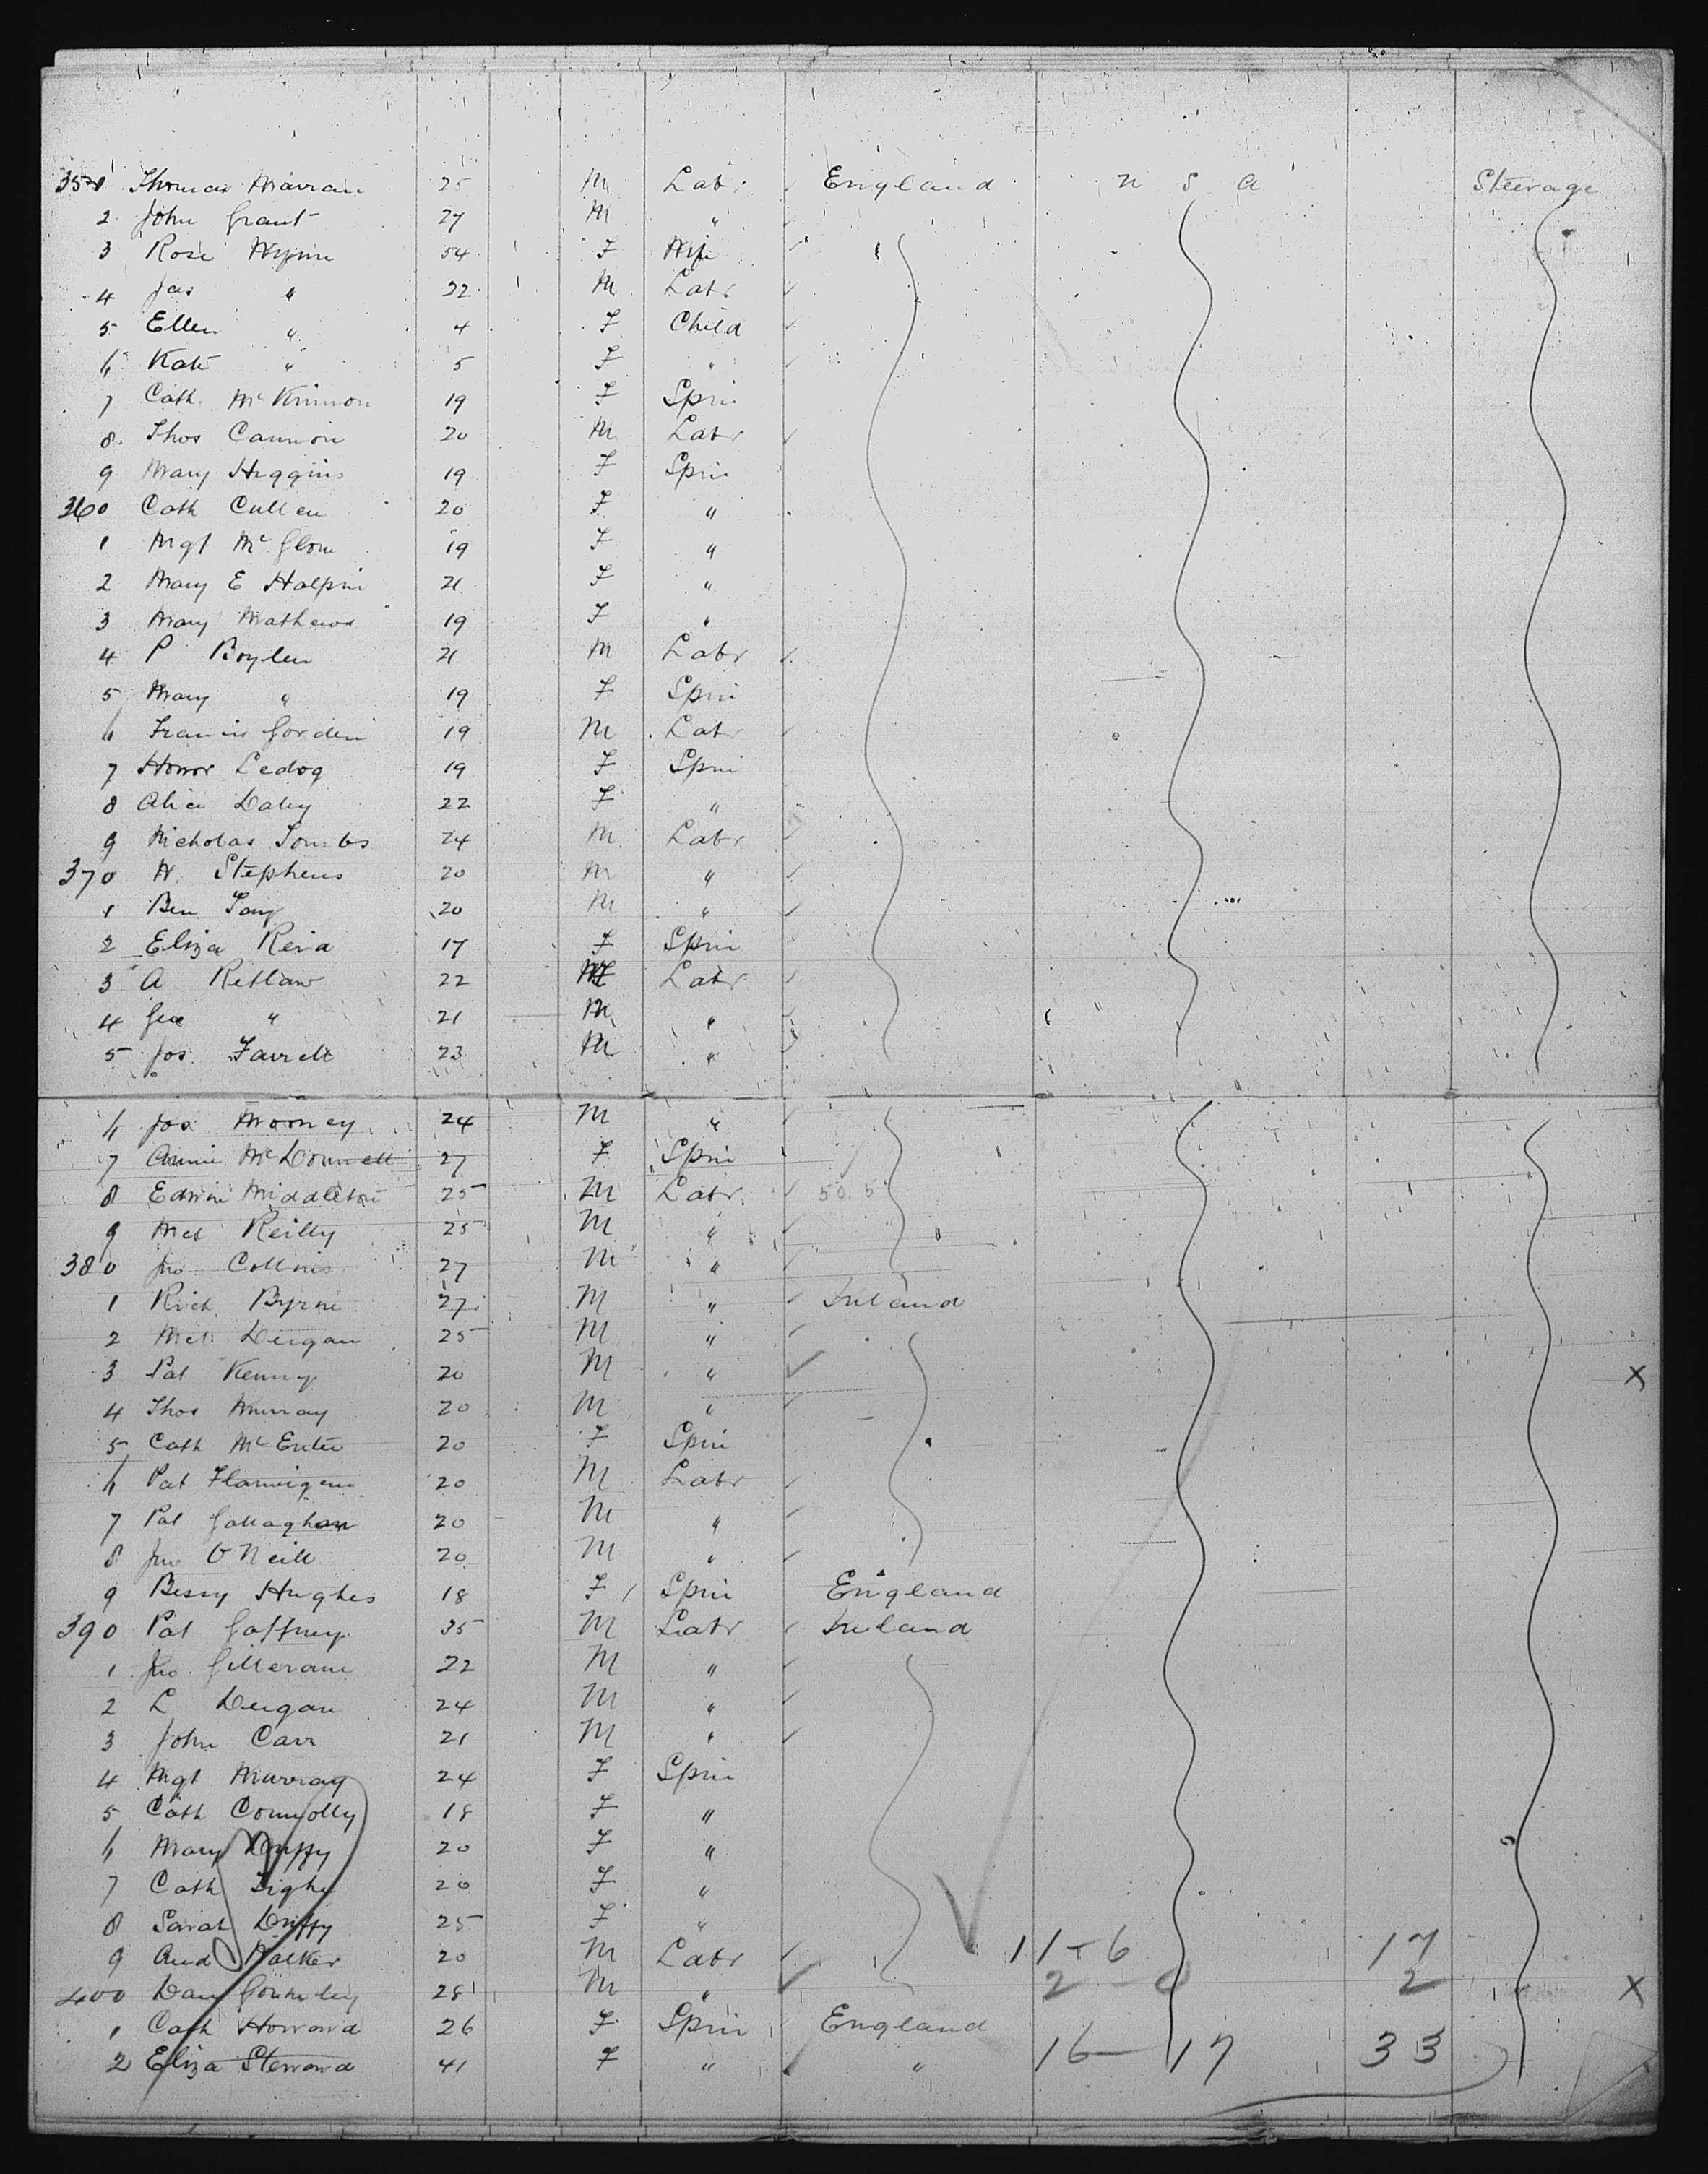 351 Thomas Marran 25 M Labr England U S A Steerage
2 John Grant 27 M "
3 Rose Wynn 54 F Wife
4 Jas " 22 M Labr
5 Ellen " 4 F Child
6 Kate " 5 F "
7 Cath. McKinnon 19 F Spin
8 Thos Cannon 20 M Labr
9 Mary Higgins 19 F Spin
360 Cath Cullen 20 F "
1 Mgt McGlone 19 F "
2 Mary E Halpin 21 F "
3 Mary Mathews 19 F "
4 P Boylen 21 M Labr
5 Mary " 19 F Spin
6 Francis Gorden 19 M Labr
7 Honor Ledog 19 F Spin
8 Alice Daley 22 F "
9 Nicholas Tombs 24 M Labr
370 W. Stephens 20 M "
1 Ben 20 M "
2 Eliza Reid 17 F Spin
3 A Retlaw 22 M Labr
4 Geo " 21 M "
5 Jos Farrell 23 M "
6 Jos Mooney 24 M "
7 Annie McDonnell 27 F Spin
8 Edwin Middleton 25 M Labr
9 Mcl Reilly 25 M "
380 Jno Collins 27 M "
1 Rich Byrne 27 M " Ireland
2 Mcl Deigan 25 M "
3 Pat Kenny 20 M " X
4 Thos Murray 20 M "
5 Cath McEntee 20 F Spin
6 Pat Flannigan 20 M Labr
7 Pat Gallaghan 20 M "
8 Jno O'Neill 20 M "
9 Bessy Hughes 18 F Spin England
390 Pat Gaffney 35 M Labr Ireland
1 Jno. Gillerane 22 M "
2 L Deigan 24 M "
3 John Carr 21 M "
4 Mgt Murray 24 F Spin
5 Cath Connolly 18 F "
6 Mary Duffy 20 F "
7 Cath Tighe 20 F "
8 Sarah Duffy 25 F "
9 And Walker 20 M Labr 11-6 17
400 Dan Gormley 28 M " 2-0 2 X
1 Cath Howard 26 F Spin England
2 Eliza Steward 41 F " " 16-17 33